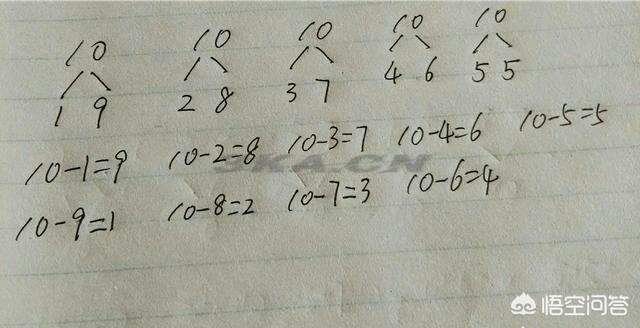 10 10 10 10 10
1 9 2 8 3 7 4 6 5 5
10-1=9 10-2=8 10-3=7 10-4=6 10-5=5
10-9=1 10-8=2 10-7=3 10-6=4
3KA.CN
悟空问答